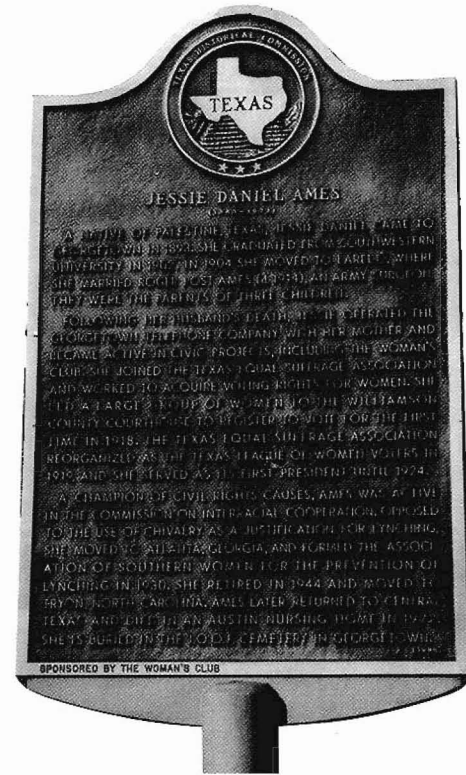 TEXAS HISTORICAL COMMISSION
TEXAS
JESSIE DANIEL AMES
A NATIVE OF PALESTINE, TEXAS, JESSIE DANIEL CAME TO
GEORGETOWN IN SHE GRADUATED FROM SOUTHWESTERN
UNIVERSITY IN IN 1904 SHE MOVED TO LAREDO, WHERE
SHE MARRIED ROGER POST AMES AN ARMY SURGEON.
THEY WERE THE PARENTS OF THREE CHILDREN.
FOLLOWING HER HUSBAND'S DEATH, OPERATED THE
GEORGETOWN TELEPHONE COMPANY WITH HER MOTHER AND
BECAME ACTIVE IN CIVIC PROJECTS, INCLUDING THE WOMAN'S
CLUB. SHE JOINED THE TEXAS EQUAL SUFFRAGE ASSOCIATION
AND WORKED TO ACQUIRE VOTING RIGHTS FOR WOMEN. SHE
LED A LARGE GROUP OF WOMEN TO THE WILLIAMSON
COUNTY COURTHOUSE TO REGISTER TO VOTE FOR THE FIRST
TIME IN 1918. THE TEXAS EQUAL SUFFRAGE ASSOCIATION
REORGANIZED AS THE TEXAS LEAGUE OF WOMEN VOTERS IN
1919, AND SHE SERVED AS ITS FIRST PRESIDENT UNTIL 1924.
A CHAMPION OF CIVIL RIGHTS CAUSES, AMES WAS ACTIVE
IN THE COMMISSION ON INTERRACIAL COOPERATION. OPPOSED
TO THE USE OF CHIVALRY AS A JUSTIFICATION FOR LYNCHING,
SHE MOVED TO ATLANTA, GEORGIA, AND FORMED THE ASSOCI-
ATION OF SOUTHERN WOMEN FOR THE PREVENTION OF
LYNCHING IN 1930. SHE RETIRED IN 1944 AND MOVED TO
TRYON, NORTH CAROLINA. AMES LATER RETURNED TO CENTRAL
TEXAS AND DIED IN AN AUSTIN NURSING HOME IN 1972.
SHE IS BURIED IN THE I.O.O.F. CEMETERY IN GEORGETOWN.
SPONSORED BY THE WOMAN'S CLUB